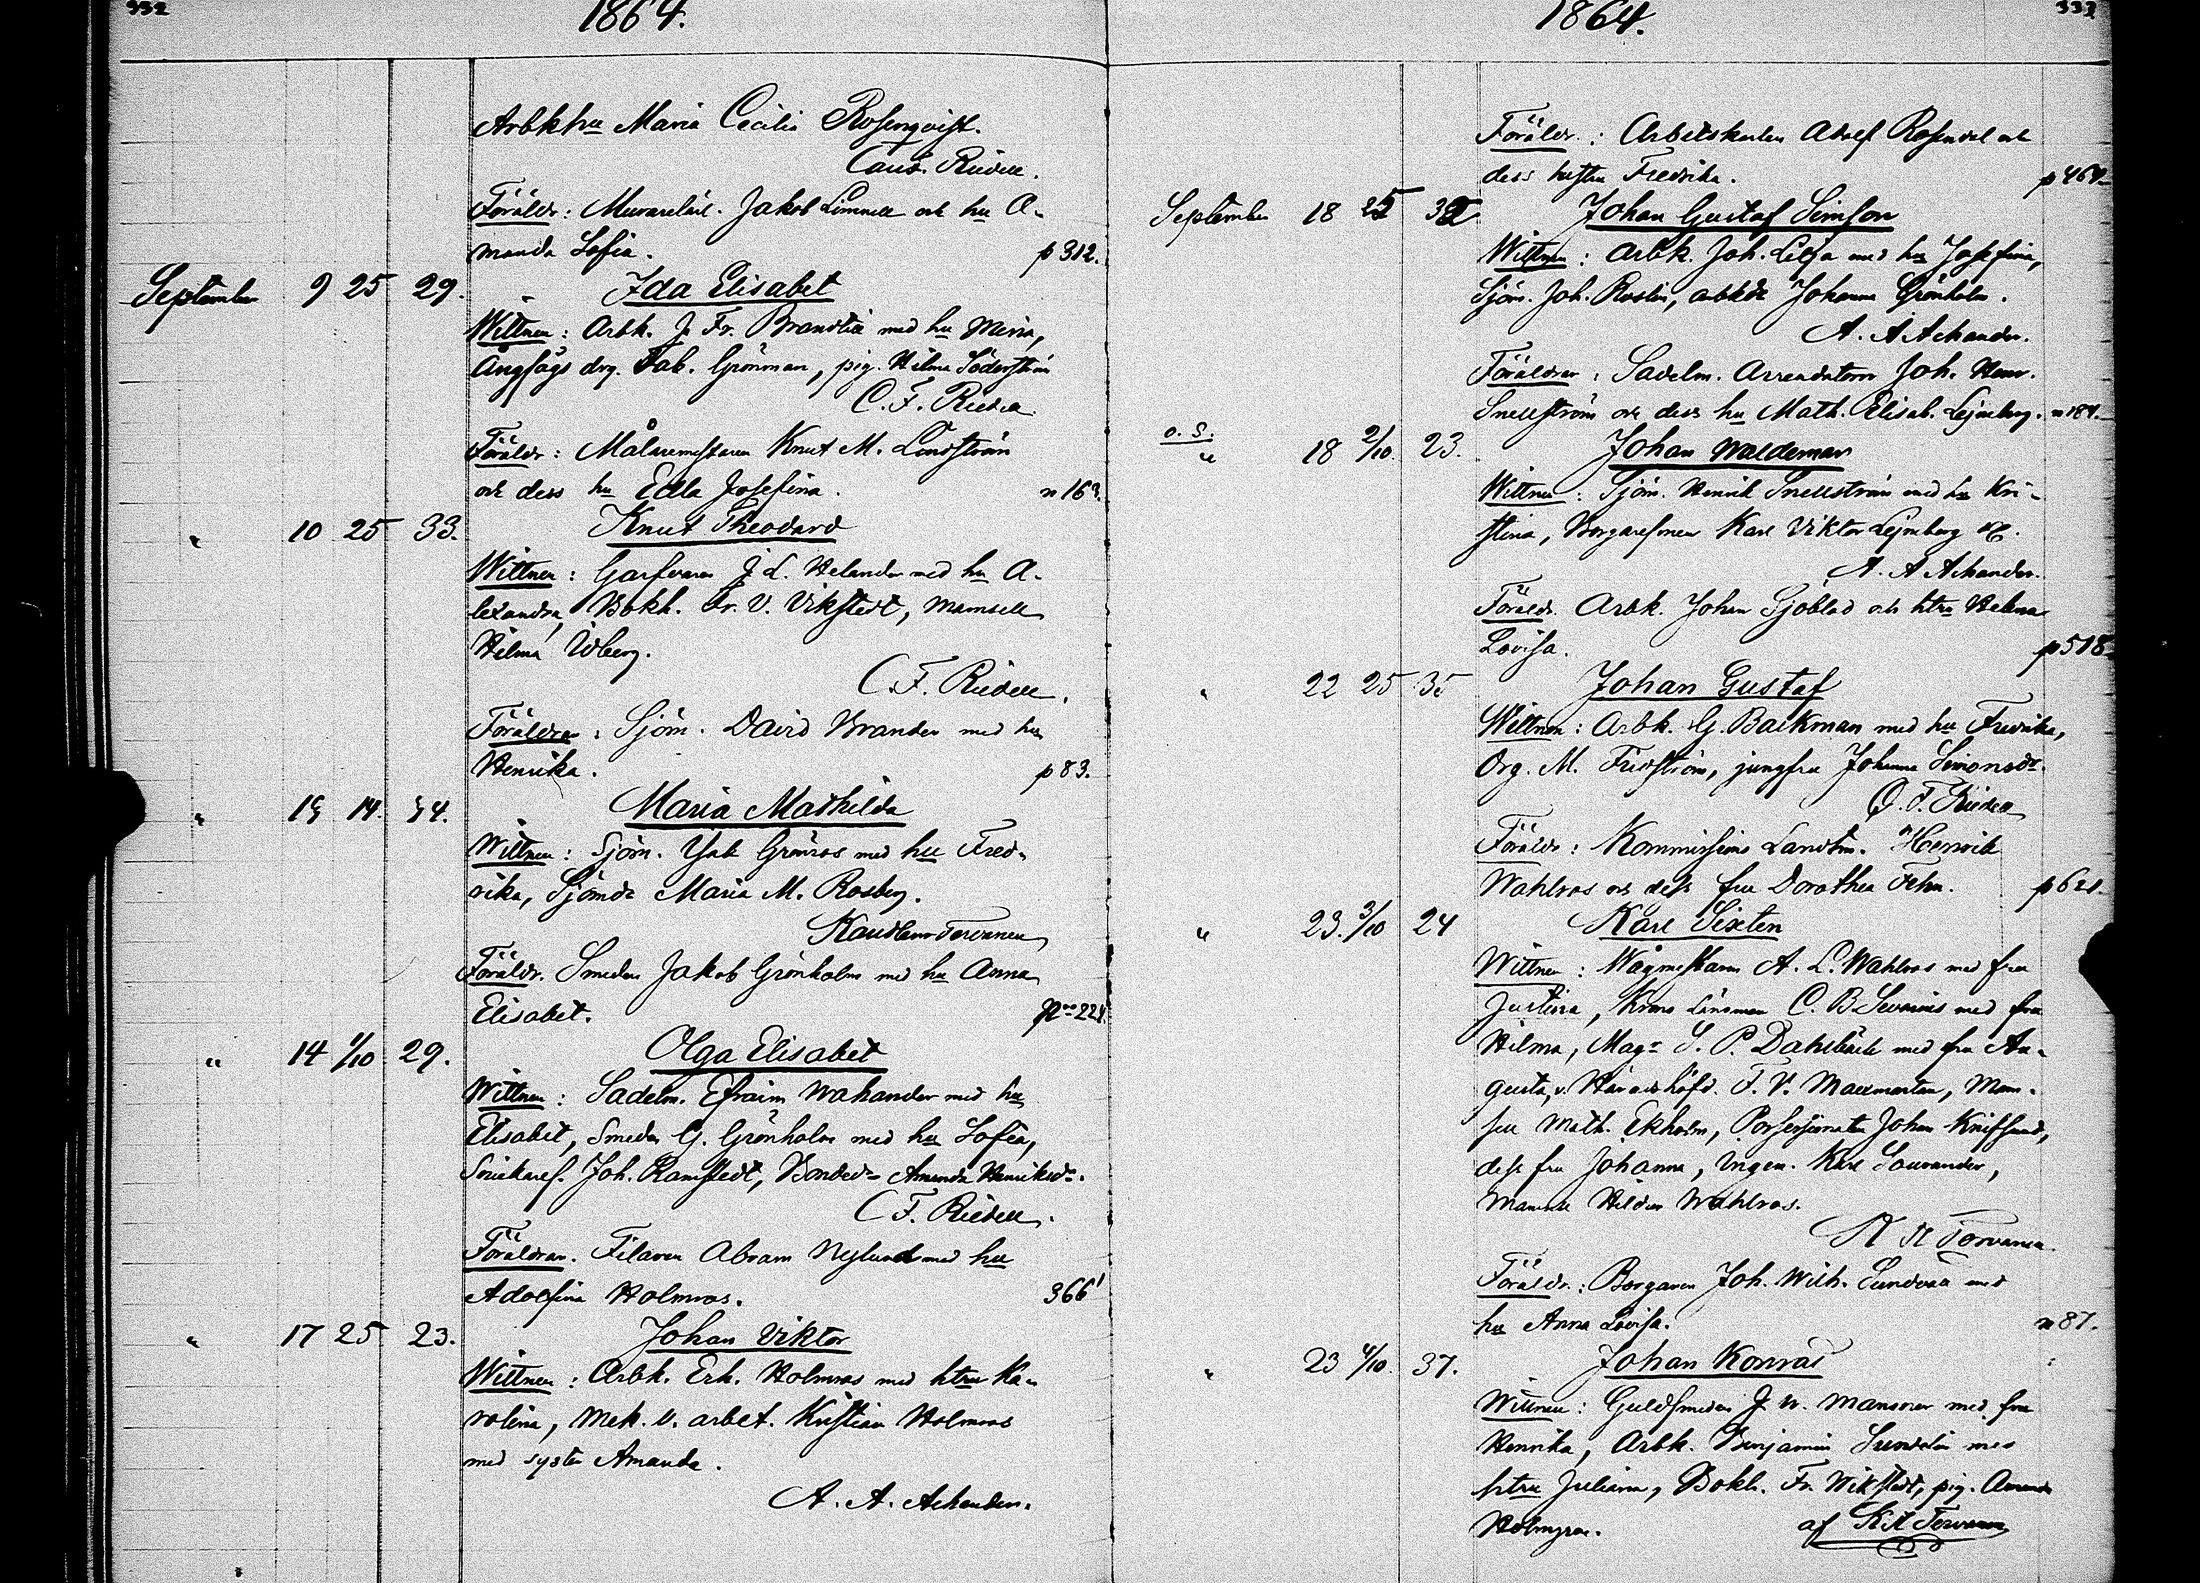 332
1864.
Arbkhu Maria Cecilia Rosenqvist.
C. Riedell.
Föräldr: Murarelärl. Jakob Limnell och hu A-
manda Sofia. p 312.
September 9 25 29. Ida Elisabet
Wittnen: Arbk. J. Fr. Brandtll med hu Maria,
Ångsågs drg. Fab. Grönman, pig. Hilma Söderström
C. F. Riedell
Föräldr: Målaremästaren Knut M. Lindström
och dess hu Edla Josefina. n 163.
" 10 25 33. Knut Theodard
Wittnen: Garfvaren J. L. Helander med hu A-
lexandra, Bokh. Fr. V. Vikstedt, Mamsell
Hilma Idberg.
C. F. Riedell.
Föräldrar: Sjöm. David Brander med hu
Henrika. p 83.
" 14. 34. Maria Mathilda
Wittnen: Sjöm. Grönros med hu Fred-
rika, Sjömdr Maria M. Rosberg.
Tervanen
Föräldr. Smeden Jakob Grönholm med hu Anna
Elisabet. 224.
" 14 1/10 29. Olga Elisabet
Wittnen: Sadelm. Efraim Wahander med hu
Elisabet, Smeden G. Grönholm med hu Sofia,
Snickaref. Joh. Ramstedt, Bondedr Amanda Henriksdr.
C F. Riedell.
Föräldrar. Filaren Abram Nylund med hu
Adolfina Holmros. 366
" 17 25 23. Johan Viktor
Wittnen: Arbk. Erk. Holmros med htru Ka-
rolina, Mek. v. arbet. Kristian Holmros
med syster Amanda.
A. A. Achander.
333
1864.
Föräldr.: Arbetskarlen Adolf Rosendal och
dess hustru Fredrika. p 464
September 18 25 32 Johan Gustaf Simson
Wittnen: Arbk. Joh. Lilja med hu Josefina,
Sjöm. Joh. Roslin, arbkdr Johanna Grönholm.
A. A Achander.
Föräldrar: Sadelm. Arrendatorn Joh. Henr.
Snellström och dess hu Math. Elisab. Lejnberg. n 184.
o. S.
" 18 2/10. 23. Johan Waldemar
Wittnen: Sjöm. Henrik Snellström med hu Kri-
stina, Borgaresonen Karl Viktor Lejnberg &c.
A. A Achander.
Föräldr. Arbk. Johan Sjöblad och htru Helena
Lovisa. p 518
" 22 25 35 Johan Gustaf
Wittnen: Arbk. G. Backman med hu Fredrika,
Drg. M. Fridström, jungfru Johanna Simonsdr.
C. F. Riedell
Föräldr: Kommissions Landtm. Henrik
Wahlros och dess fru Dorothea Fehn. p 621.
" 23. 3/10 24 Karl Sixten
Wittnen: Vågmästaren A. L. Wahlros med fru
Justina, Krono Länsman C. B. med fru
Hilma, Magr S. P. Dahlbäck med fru Au-
gusta, v. Häradshöfd. F. V. Mam-
sell Math. Ekholm, Possessionaten Johan
dess fru Johanna, Ingen. Karl Sourander,
Mamsell Hilda Wahlros.
K A Tervanen.
Föräldr.: Borgaren Joh. Wilh. Sundvall med
hu Anna Lovisa. n 87.
" 23 4/10. 37. Johan Konrad
Wittnen: Guldsmeden J. W. Mansner med fru
Henrika, Arbk. Benjamin Sundelin med
htru Juliana, Bokh. Fr. Wikstedt, pig. Amanda
Holmgren. af K A Tervanen